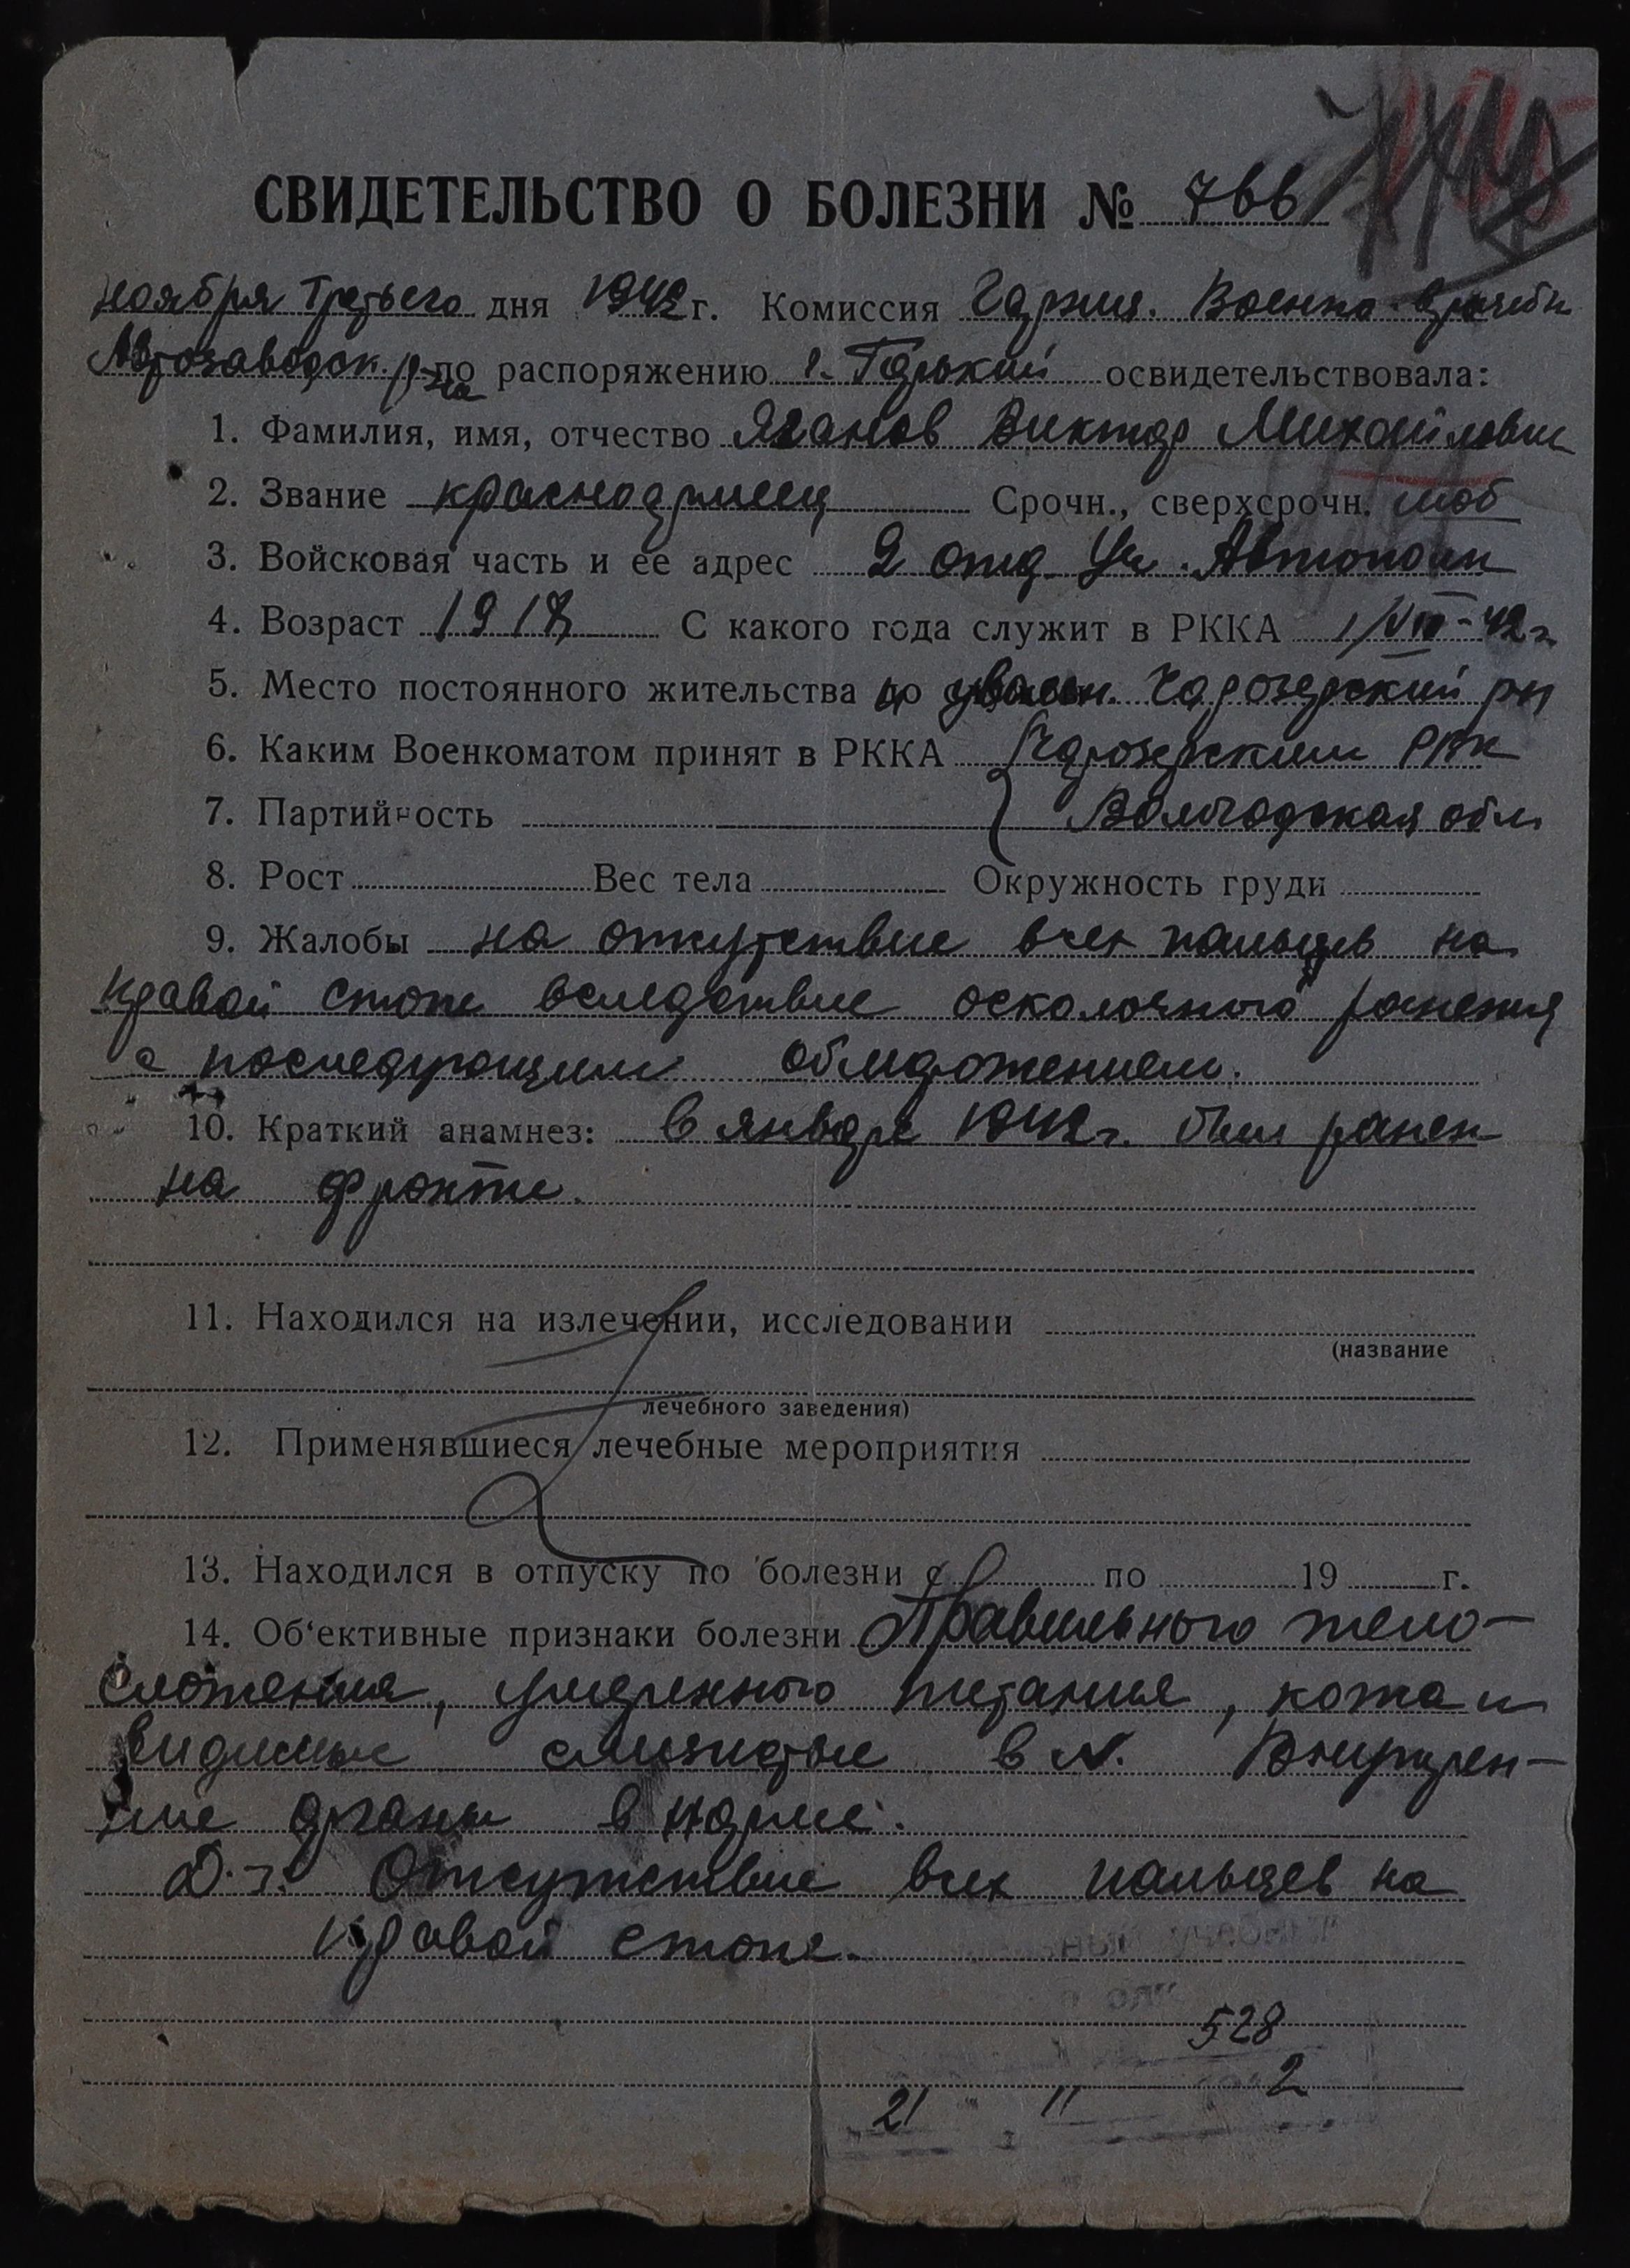 СВИДЕТЕЛЬСТВО О БОЛЕЗНИ № 766
ноября Третьего дня 1942 г. Комиссия Гарниз. Военно-врачебн
Автозаводск. р-на по распоряжению г. Горький освидетельствовала:
1. Фамилия, имя, отчество Яганов Виктор Михайлович
2. Звание красноармеец Срочн., сверхсрочн. моб
3. Войсковая часть и ее адрес 2 отд. Уч. Автополк
4. Возраст 1917 С какого года служит в РККА 1/VIII-42г
5. Место постоянного жительства до увольн. Чарозерский рн
6. Каким Военкоматом принят в РККА Чарозерским РВК
7. Партийность Вологодская обл
8. Рост Вес тела Окружность груди
9. Жалобы на отсутствие всех пальцев на
правой стопе вследствие осколочного ранения
с последующим обморожением.
10. Краткий анамнез: в январе 1942г. был ранен
на фронте.
11. Находился на излечении, исследовании
(название
лечебного заведения)
12. Применявшиеся лечебные мероприятия
13. Находился в отпуску по болезни с по 19 г.
14. Об'ективные признаки болезни Правильного тело-
сложения, умеренного питания, кожа и
видимые слизистые в N. Внутрен-
ние органы в норме.
D.-з. Отсутствие всех пальцев на
правой стопе.
528
2
21 11